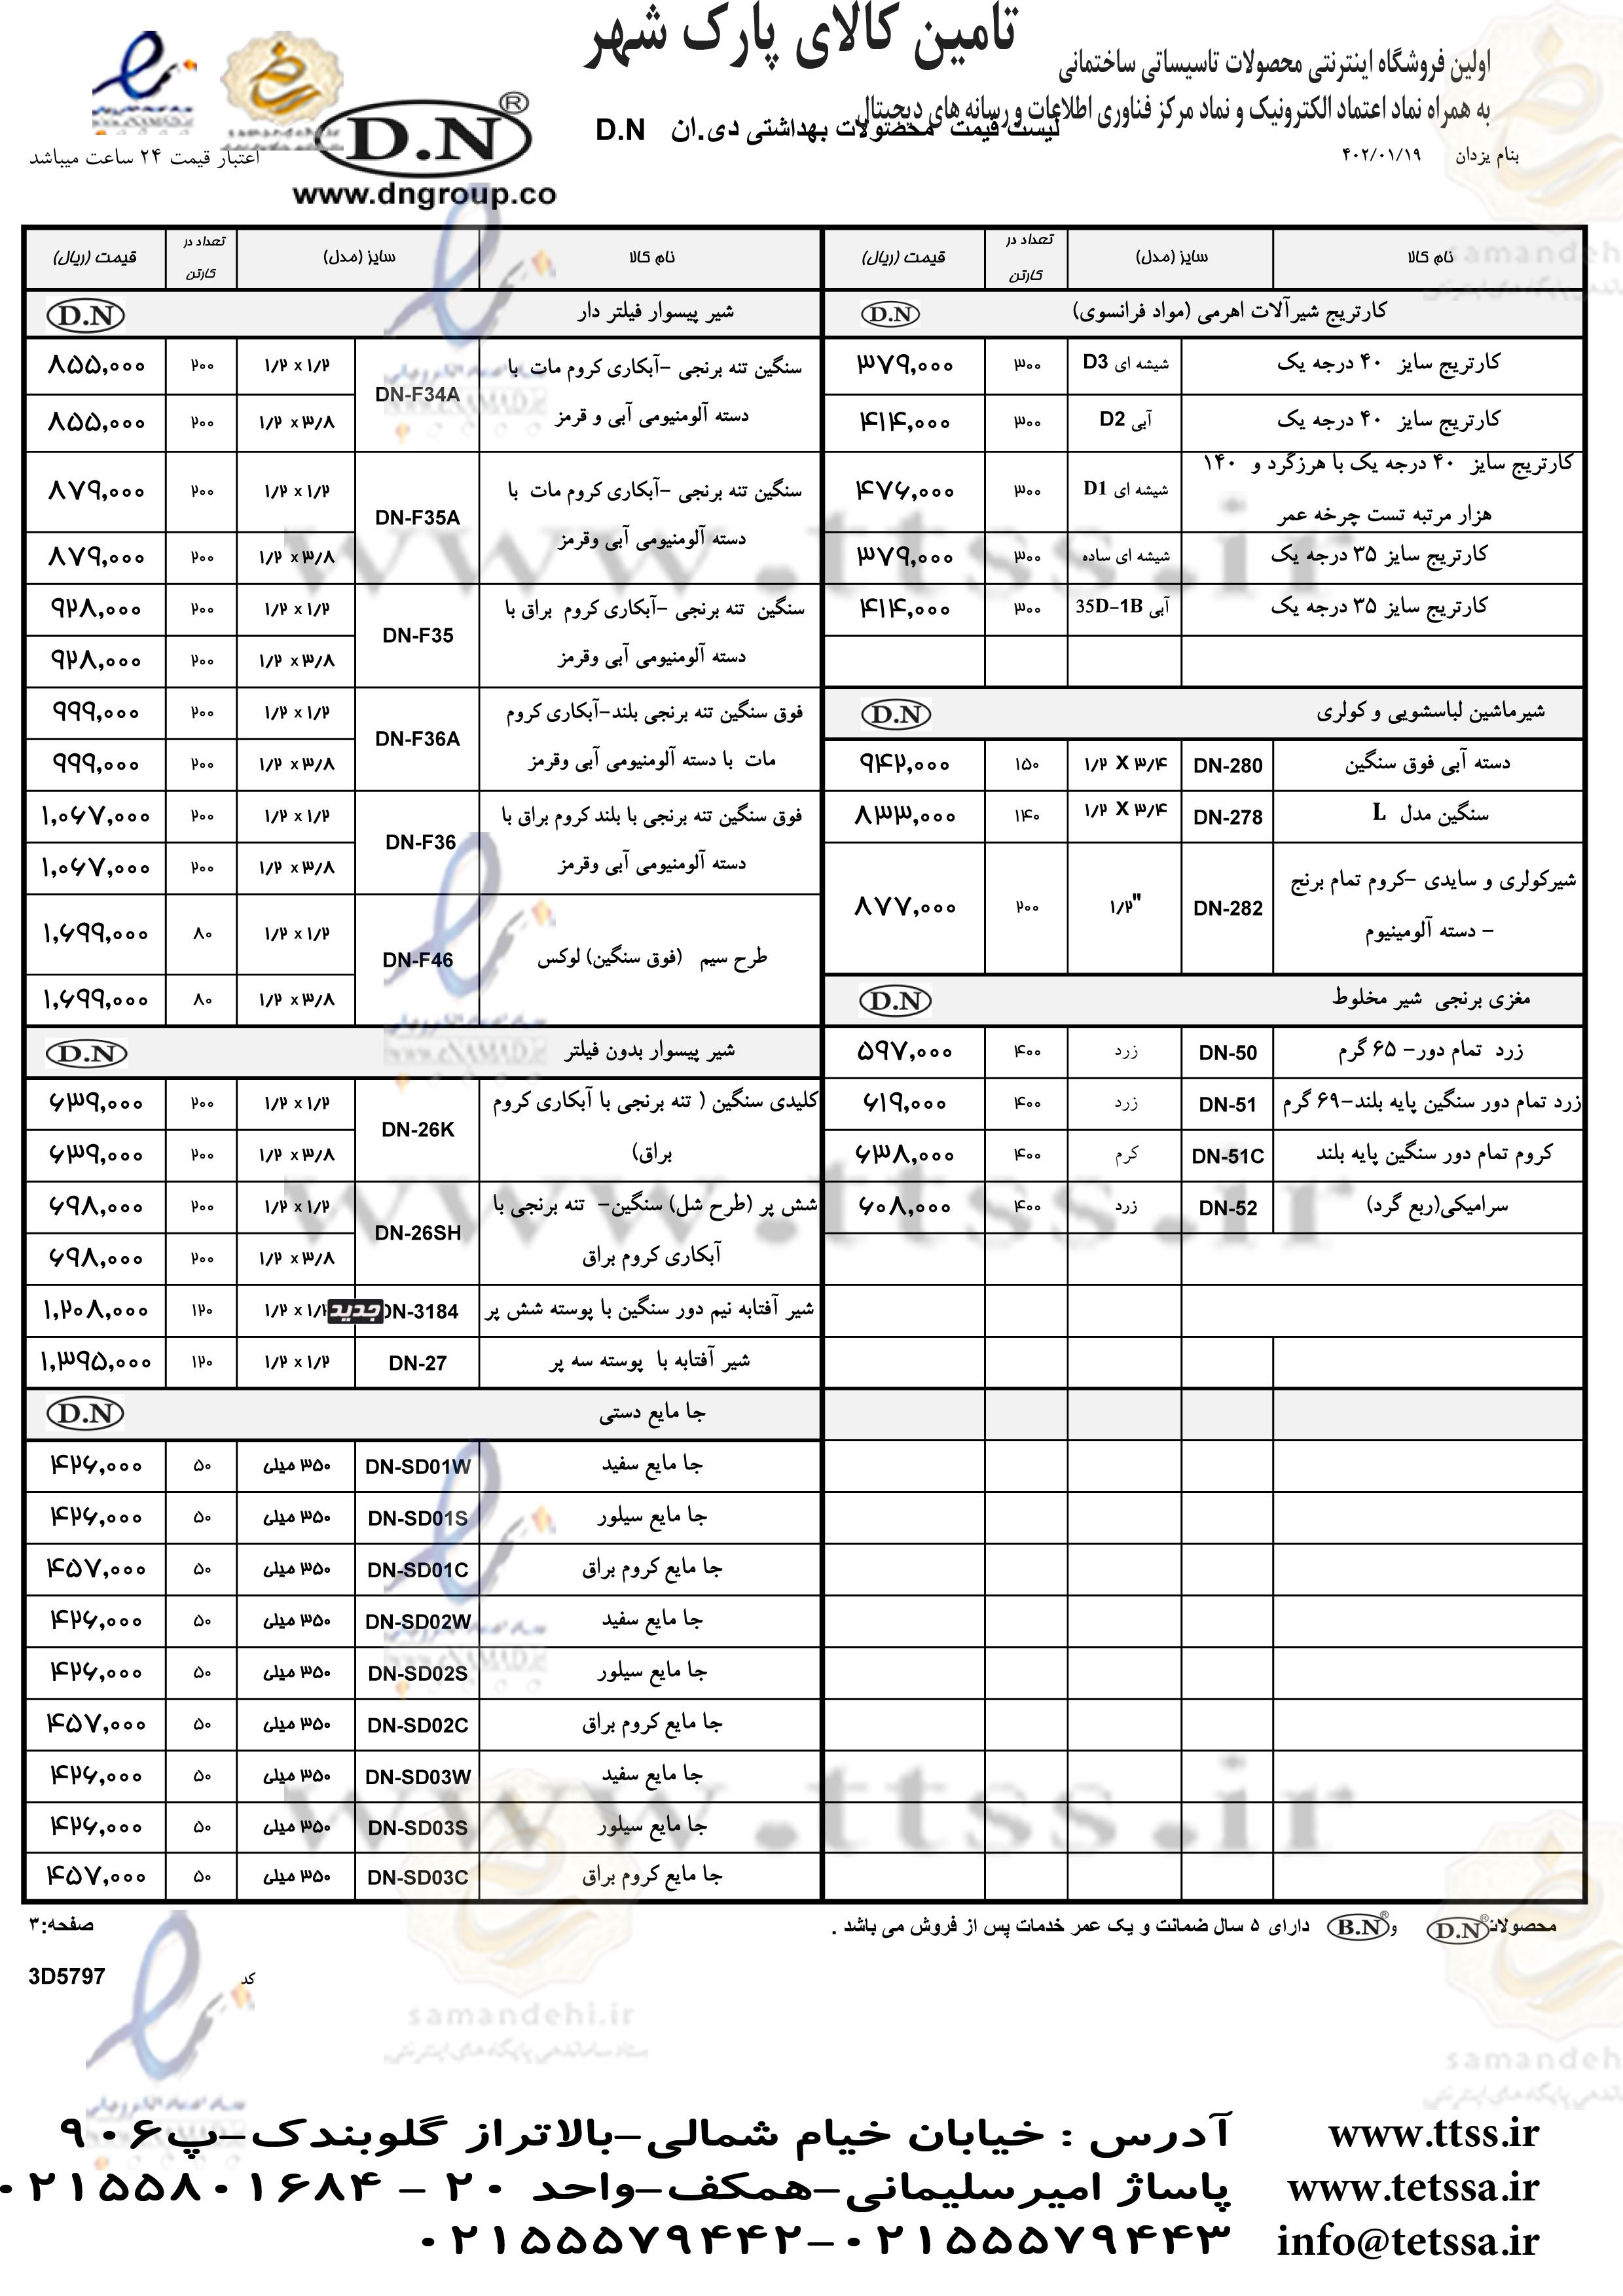 تامین کالای پارک شهر
اولین فروشگاه اینترنتی محصولات تاسیساتی ساختمانی
به همراه نماد اعتماد الکترونیک و نماد مرکز فناوری اطلاعات و رسانه های دیجیتال
لیست قیمت محصولات بهداشتی دی.ان D.N
بنام یزدان ۴۰۲/۰۱/۱۹
اعتبار قیمت ۲۴ ساعت میباشد
D.N®
www.dngroup.co
نام کالا سایز (مدل) تعداد در کارتن قیمت (ریال)
کارتریج شیرآلات اهرمی (مواد فرانسوی) D.N
کارتریج سایز ۴۰ درجه یک شیشه ای D3 ۳۰۰ ۳۷۹,۰۰۰
کارتریج سایز ۴۰ درجه یک آبی D2 ۳۰۰ ۴۱۴,۰۰۰
کارتریج سایز ۴۰ درجه یک با هرزگرد و ۱۴۰
هزار مرتبه تست چرخه عمر شیشه ای D1 ۳۰۰ ۴۷۶,۰۰۰
کارتریج سایز ۳۵ درجه یک شیشه ای ساده ۳۰۰ ۳۷۹,۰۰۰
کارتریج سایز ۳۵ درجه یک آبی 35D-1B ۳۰۰ ۴۱۴,۰۰۰
شیرماشین لباسشویی و کولری D.N
دسته آبی فوق سنگین DN-280 ۱/۲ X ۳/۴ ۱۵۰ ۹۴۲,۰۰۰
سنگین مدل L DN-278 ۱/۲ X ۳/۴ ۱۴۰ ۸۳۳,۰۰۰
شیرکولری و سایدی -کروم تمام برنج
- دسته آلومینیوم DN-282 ۱/۲" ۲۰۰ ۸۷۷,۰۰۰
مغزی برنجی شیر مخلوط D.N
زرد تمام دور- ۶۵ گرم DN-50 زرد ۴۰۰ ۵۹۷,۰۰۰
زرد تمام دور سنگین پایه بلند-۶۹ گرم DN-51 زرد ۴۰۰ ۶۱۹,۰۰۰
کروم تمام دور سنگین پایه بلند DN-51C کرم ۴۰۰ ۶۳۸,۰۰۰
سرامیکی(ربع گرد) DN-52 زرد ۴۰۰ ۶۰۸,۰۰۰
نام کالا سایز (مدل) تعداد در کارتن قیمت (ریال)
شیر پیسوار فیلتر دار D.N
سنگین تنه برنجی -آبکاری کروم مات با DN-F34A ۱/۲ x ۱/۲ ۲۰۰ ۸۵۵,۰۰۰
دسته آلومنیومی آبی و قرمز ۱/۲ x ۳/۸ ۲۰۰ ۸۵۵,۰۰۰
سنگین تنه برنجی -آبکاری کروم مات با DN-F35A ۱/۲ x ۱/۲ ۲۰۰ ۸۷۹,۰۰۰
دسته آلومنیومی آبی وقرمز ۱/۲ x ۳/۸ ۲۰۰ ۸۷۹,۰۰۰
سنگین تنه برنجی -آبکاری کروم براق با DN-F35 ۱/۲ x ۱/۲ ۲۰۰ ۹۲۸,۰۰۰
دسته آلومنیومی آبی وقرمز ۱/۲ x ۳/۸ ۲۰۰ ۹۲۸,۰۰۰
فوق سنگین تنه برنجی بلند-آبکاری کروم DN-F36A ۱/۲ x ۱/۲ ۲۰۰ ۹۹۹,۰۰۰
مات با دسته آلومنیومی آبی وقرمز ۱/۲ x ۳/۸ ۲۰۰ ۹۹۹,۰۰۰
فوق سنگین تنه برنجی با بلند کروم براق با DN-F36 ۱/۲ x ۱/۲ ۲۰۰ ۱,۰۶۷,۰۰۰
دسته آلومنیومی آبی وقرمز ۱/۲ x ۳/۸ ۲۰۰ ۱,۰۶۷,۰۰۰
طرح سیم (فوق سنگین) لوکس DN-F46 ۱/۲ x ۱/۲ ۸۰ ۱,۶۹۹,۰۰۰
۱/۲ x ۳/۸ ۸۰ ۱,۶۹۹,۰۰۰
شیر پیسوار بدون فیلتر D.N
کلیدی سنگین ( تنه برنجی با آبکاری کروم DN-26K ۱/۲ x ۱/۲ ۲۰۰ ۶۳۹,۰۰۰
براق) ۱/۲ x ۳/۸ ۲۰۰ ۶۳۹,۰۰۰
شش پر (طرح شل) سنگین- تنه برنجی با DN-26SH ۱/۲ x ۱/۲ ۲۰۰ ۶۹۸,۰۰۰
آبکاری کروم براق ۱/۲ x ۳/۸ ۲۰۰ ۶۹۸,۰۰۰
شیر آفتابه نیم دور سنگین با پوسته شش پر DN-3184 جدید ۱/۲ x ۱/۲ ۱۲۰ ۱,۲۰۸,۰۰۰
شیر آفتابه با پوسته سه پر DN-27 ۱/۲ x ۱/۲ ۱۲۰ ۱,۳۹۵,۰۰۰
جا مایع دستی D.N
جا مایع سفید DN-SD01W ۳۵۰ میلی ۵۰ ۴۲۶,۰۰۰
جا مایع سیلور DN-SD01S ۳۵۰ میلی ۵۰ ۴۲۶,۰۰۰
جا مایع کروم براق DN-SD01C ۳۵۰ میلی ۵۰ ۴۵۷,۰۰۰
جا مایع سفید DN-SD02W ۳۵۰ میلی ۵۰ ۴۲۶,۰۰۰
جا مایع سیلور DN-SD02S ۳۵۰ میلی ۵۰ ۴۲۶,۰۰۰
جا مایع کروم براق DN-SD02C ۳۵۰ میلی ۵۰ ۴۵۷,۰۰۰
جا مایع سفید DN-SD03W ۳۵۰ میلی ۵۰ ۴۲۶,۰۰۰
جا مایع سیلور DN-SD03S ۳۵۰ میلی ۵۰ ۴۲۶,۰۰۰
جا مایع کروم براق DN-SD03C ۳۵۰ میلی ۵۰ ۴۵۷,۰۰۰
www.ttss.ir
www.ttss.ir
www.ttss.ir
محصولات D.N® و B.N® دارای ۵ سال ضمانت و یک عمر خدمات پس از فروش می باشد .
صفحه:۳
کد 3D5797
samandehi.ir
آدرس : خیابان خیام شمالی-بالاتراز گلوبندک-پ۹۰۶
پاساژ امیرسلیمانی-همکف-واحد ۲۰ - ۰۲۱۵۵۸۰۱۶۸۴
۰۲۱۵۵۵۷۹۴۴۲-۰۲۱۵۵۵۷۹۴۴۳
www.ttss.ir
www.tetssa.ir
info@tetssa.ir